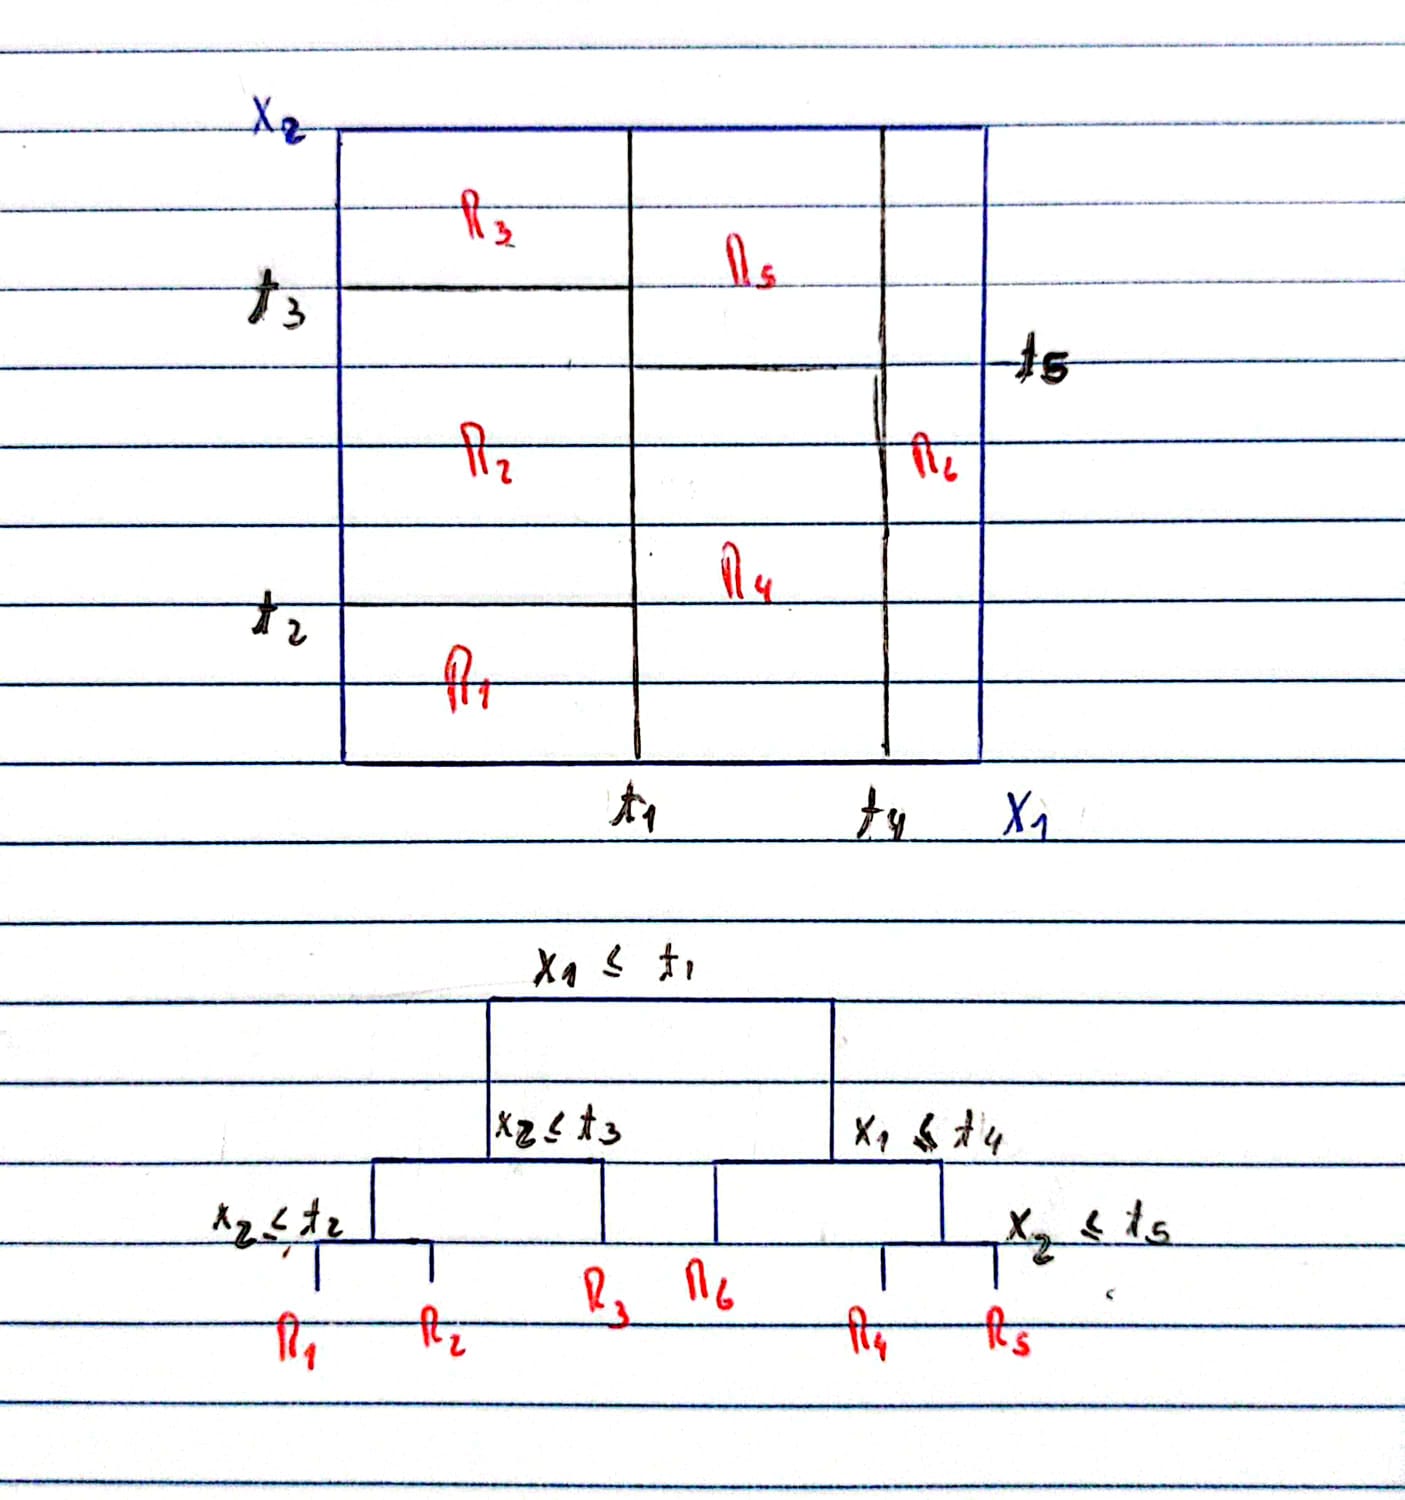 X₂
R₃
R₅
t₃
t₅
R₂
R₆
R₄
t₂
R₁
t₁ t₄ X₁
X₁ ≤ t₁
X₂ ≤ t₃ X₁ ≤ t₄
X₂ ≤ t₂ X₂ ≤ t₅
R₃ R₆
R₁ R₂ R₄ R₅